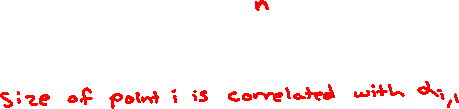 n
Size of point i is correlated with αi,1